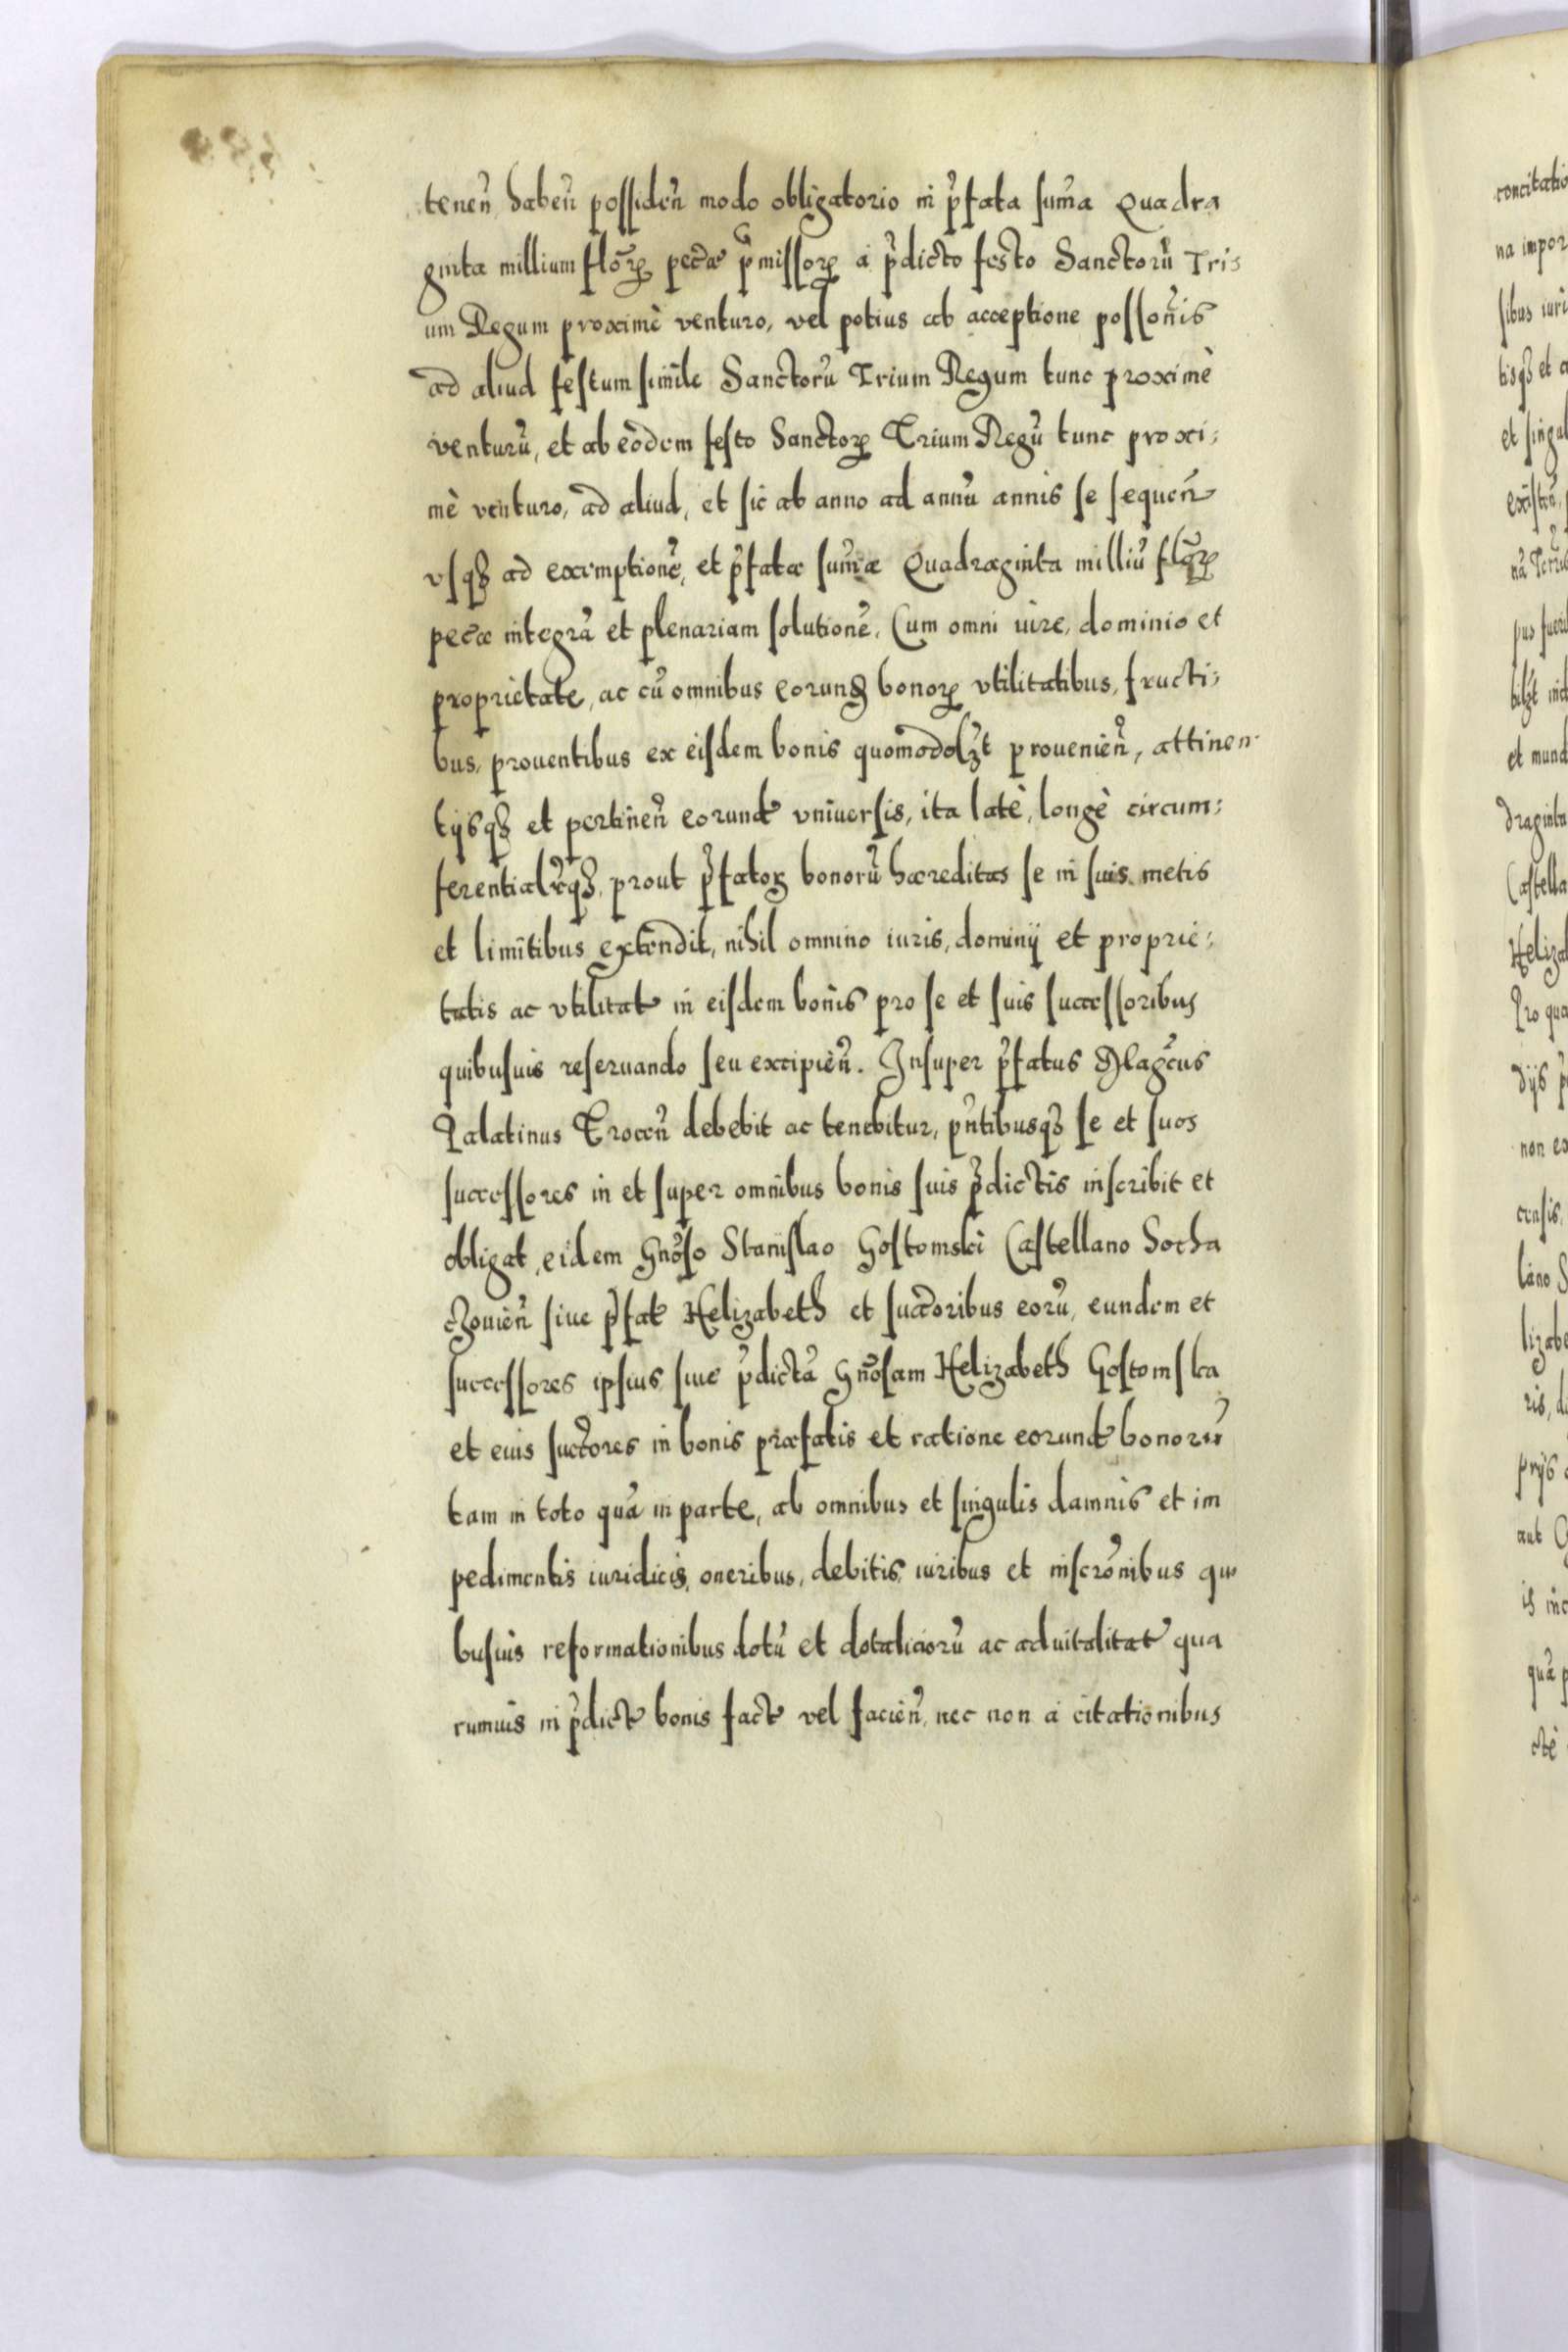 teneñ habeñ possideñ modo obligatorio in p̃fata sum̃a Quadra
ginta millium flõꝝ pecæ̃ p̃missoꝝ a p̃dicto festo Sanctorũ Tri;
um Regum proximè venturo, vel potius ab acceptione possoñis
ad aliud festum simile Sanctorũ Trium Regum tunc proximè
venturũ, et ab eodem festo Sanctoꝝ Trium Regũ tunc proxi;
mè venturo, ad aliud, et sic ab anno ad annũ annis se sequeñ
vsqꝫ ad exemptionẽ, et p̃fatæ sum̃æ Quadraginta milliũ flõꝝ
pecæ̃ integrã et plenariam solutionẽ, Cum omni iure, dominio et
proprietate, ac cũ omnibus eorundꝫ bonoꝝ vtilitatibus, fructi;
bus, prouentibus ex eisdem bonis quomodolꝫt prouenieñ, attinen
tijsqꝫ et pertineñ eorund vniuersis, ita latè, longè circum;
ferentialr̃qꝫ, prout p̃fatoꝝ bonorũ hæreditas se in suis metis
et limitibus extendit, nihil omnino iuris, dominij et proprie;
tatis ac vtilitat in eisdem bonis pro se et suis successoribus
quibusuis reseruando seu excipieñ. Insuper p̃fatus Magc̃us
Palatinus Troceñ debebit ac tenebitur, pñtibusqꝫ se et suos
successores in et super omnibus bonis suis p̃dictis inscribit et
obligat, eidem Gnõso Stanislao Gostomski Castellano Socha
czouieñ siue p̃fat Helizabeth et succ̃oribus eorũ, eundem et
successores ipsius siue p̃dictã Gnõsam Helizabeth Gostomska
et eius succ̃ores in bonis præfatis et ratione eorund bonorũ
tam in toto quã in parte, ab omnibus et singulis damnis et im
pedimentis iuridicis, oneribus, debitis, iuribus et inscrõnibus qui
busuis reformationibus dotũ et dotaliciorũ ac aduitalitat qua
rumuis in p̃dict bonis fact vel facieñ, nec non a citationibus